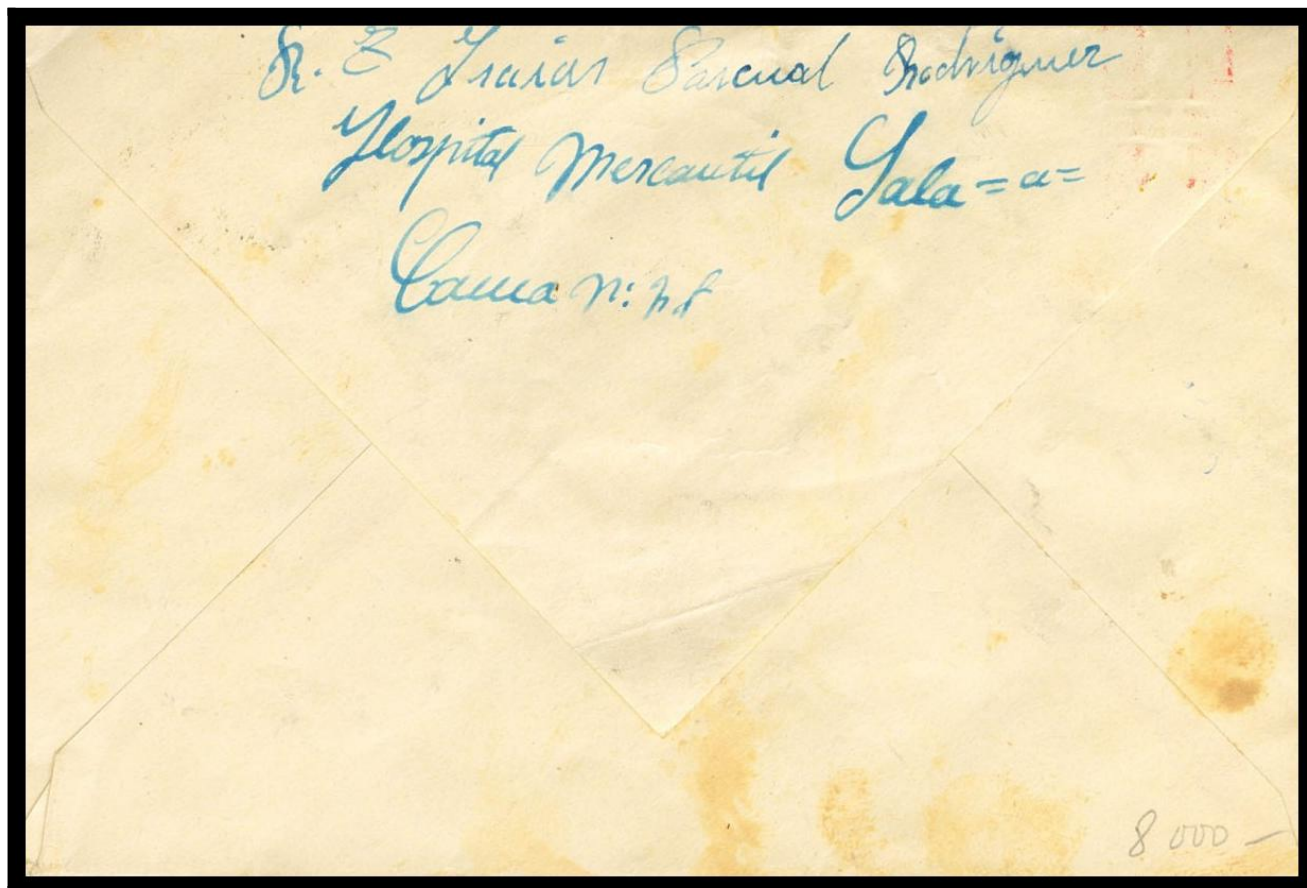 R. E Isaias Pascual Rodriguez
Hospital Mercantil Sala =a=
Cama n:
8 000 —